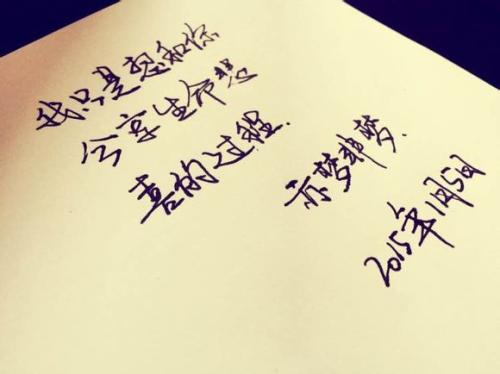 我只是想和你
分享生命悲
喜的过程.
亦梦非梦.
2015年1月5日